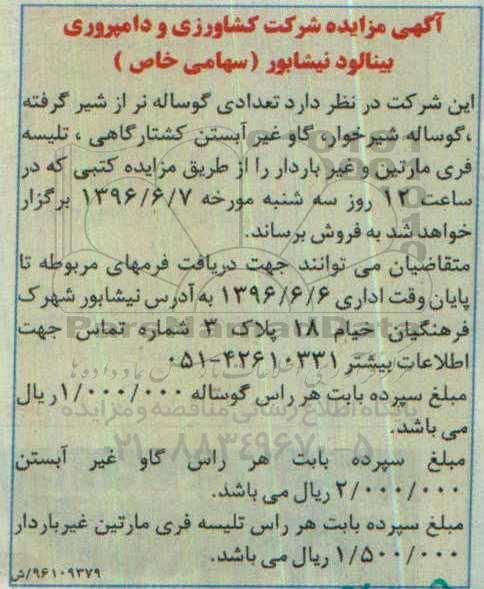 آگهی مزایده شرکت کشاورزی و دامپروری
بینالود نیشابور (سهامی خاص)
این شرکت در نظر دارد تعدادی گوساله نر از شیر گرفته
،گوساله شیرخوار، گاو غیر آبستن کشتارگاهی ، تلیسه
فری مارتین و غیر باردار را از طریق مزایده کتبی که در
ساعت ۱۲ روز سه شنبه مورخه ۱۳۹۶/۶/۷ برگزار
خواهد شد به فروش برساند.
متقاضیان می توانند جهت دریافت فرمهای مربوطه تا
پایان وقت اداری ۱۳۹۶/۶/۶ به آدرس نیشابور شهرک
فرهنگیان خیام ۱۸ پلاک ۳ شماره تماس جهت
اطلاعات بیشتر ۴۲۶۱۰۳۳۱-۰۵۱
مبلغ سپرده بابت هر راس گوساله ۱/۰۰۰/۰۰۰ ریال
می باشد.
مبلغ سپرده بابت هر راس گاو غیر آبستن
۲/۰۰۰/۰۰۰ ریال می باشد.
مبلغ سپرده بابت هر راس تلیسه فری مارتین غیرباردار
۱/۵۰۰/۰۰۰ ریال می باشد.
۹۶۱۰۹۳۷۹/ش
ParsNamadData
پایگاه اطلاع رسانی مناقصه و مزایده